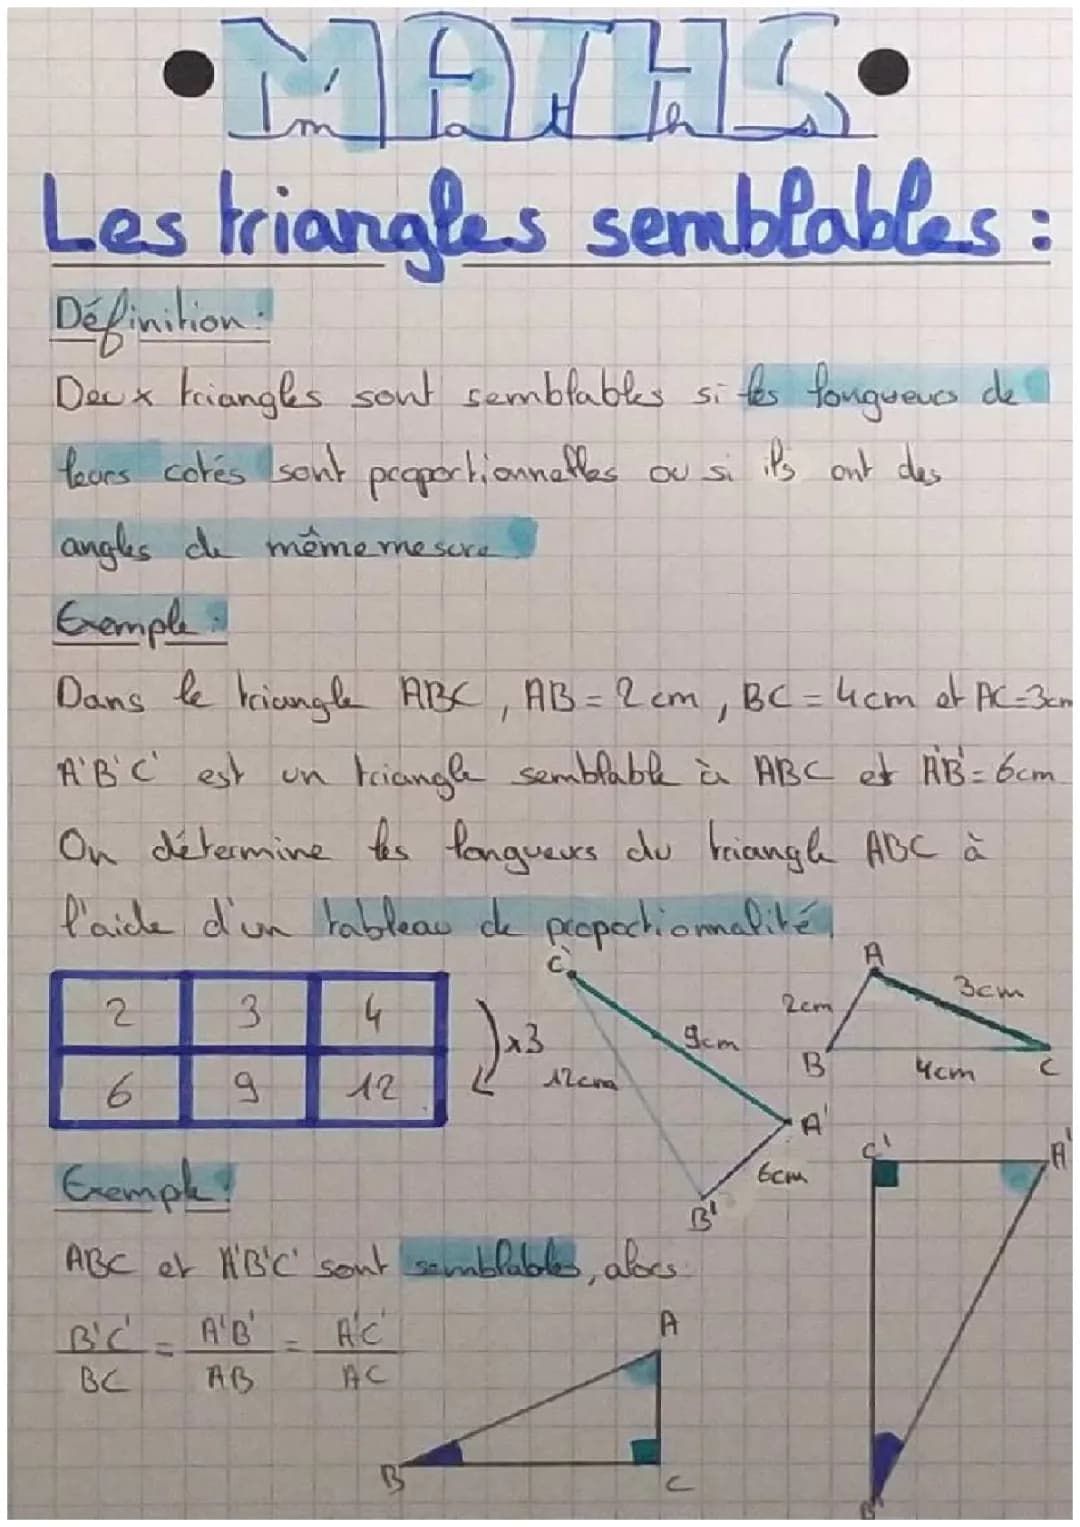 MATHS
maths
Les triangles semblables :
Définition :
Deux triangles sont semblables si les longueurs de
leurs cotés sont proportionnelles ou si ils ont des
angles de même mesure
Exemple :
Dans le triangle ABC, AB = 2cm, BC = 4cm et AC=3cm
A'B'C' est un triangle semblable à ABC et A'B' = 6cm
On détermine les longueurs du triangle ABC à
l'aide d'un tableau de proportionnalité
2 3 4
6 9 12
x3
C'
9cm
12cm
A'
6cm
B'
A
3cm
2cm
B
4cm
C
Exemple :
ABC et A'B'C' sont semblables, alors :
B'C'/BC = A'B'/AB = A'C'/AC
A
B
C
C'
A'
B'